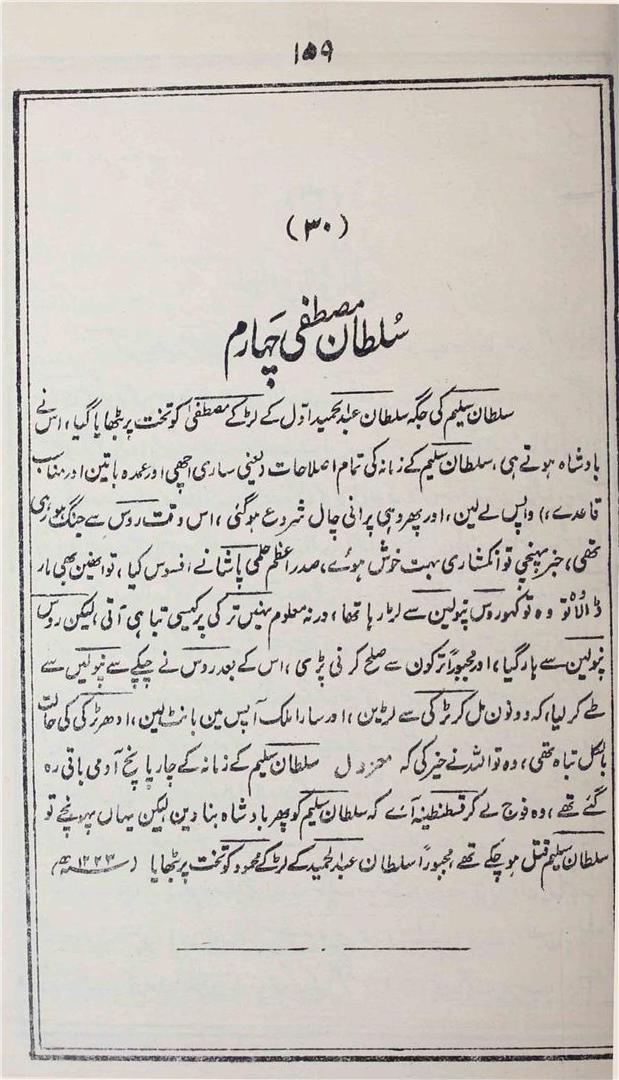 ۱۵۹
(۳۰)
سُلطان مصطفیٰ چہارم
سلطان سلیم کی جگہ سلطان عبدالحمید اوّل کے لڑکے مصطفیٰ کو تخت پر بٹھایا گیا، اس نے
بادشاہ ہوتے ہی، سلطان سلیم کے زمانہ کی تمام اصلاحات (یعنی ساری اچھی اور عمدہ باتین اور مناسب
قاعدے،) واپس لے لین، اور پھر وہی پرانی چال شروع ہوگئی، اس وقت روس سے جنگ ہو رہی
تھی، خبر پہنچی تو انکشاری بہت خوش ہوئے، صدر اعظم حلمی پاشا نے افسوس کیا، تو انھین بھی مار
ڈالا، وہ تو کہو روس نپولین سے لڑ رہا تھا، ورنہ معلوم نہیں ترکی پر کیسی تباہی آتی، لیکن روس
نپولین سے ہار گیا، اور مجبوراً ترکون سے صلح کرنی پڑی، اس کے بعد روس نے چپکے سے نپولین سے
طے کر لیا، کہ دونون مل کر ٹرکی سے لڑین، اور سارا ملک آپس مین بانٹ لین، ادھر ٹرکی کی حالت
بالکل تباہ تھی، وہ تو اللہ نے خیر کی کہ معزول سلطان سلیم کے زمانہ کے چار پانچ آدمی باقی رہ
گئے تھے، وہ فوج لے کر قسطنطنیہ آئے کہ سلطان سلیم کو پھر بادشاہ بنا دین لیکن یہاں پہونچے تو
سلطان سلیم قتل ہو چکے تھے، مجبوراً سلطان عبدالحمید کے لڑکے محمود کو تخت پر بٹھایا (۱۲۲۳ھ)